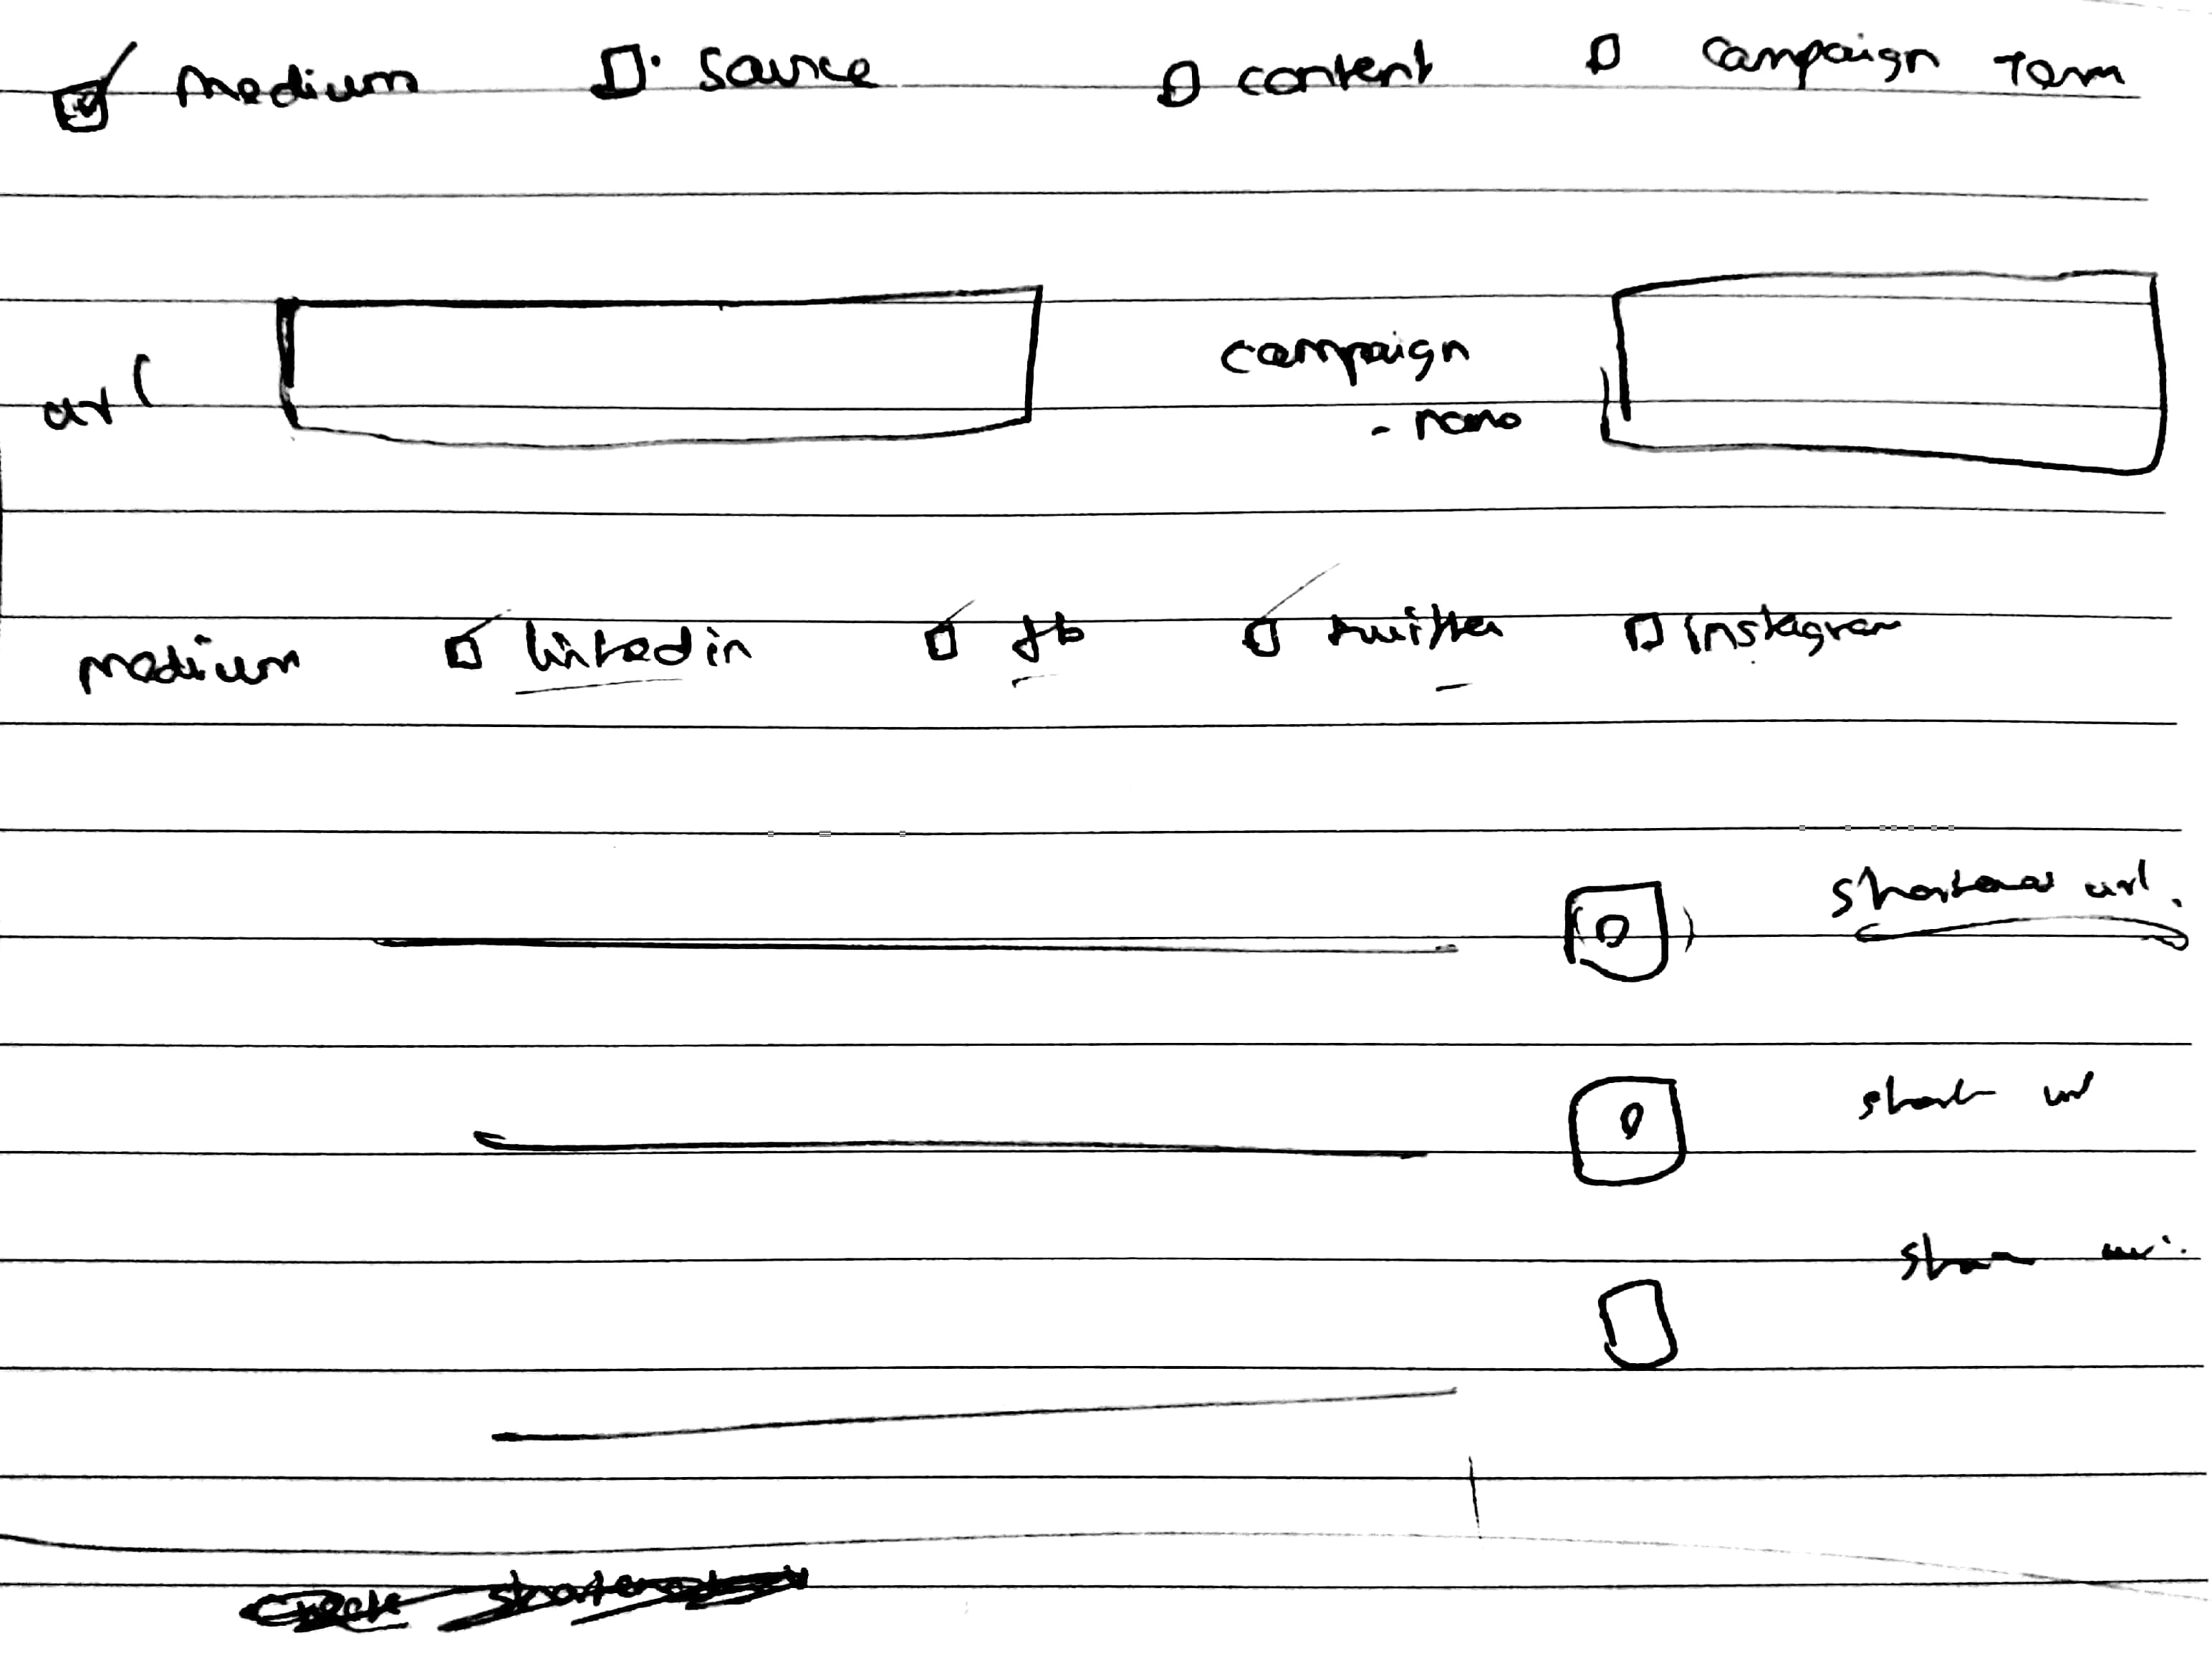 medium source content campaign Term
url campaign
- name
medium linkedin fb twitter instagram
shortened url.
short url